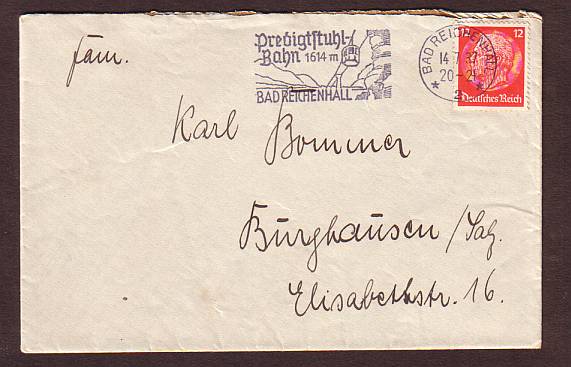 Fam.
Predigtstuhl-
Bahn 1614 m
BAD REICHENHALL
BAD REICHENHALL
14.7.37
20-21
2
12
Deutsches Reich
Karl Bommer
Burghausen / Salz.
Elisabethstr. 16.